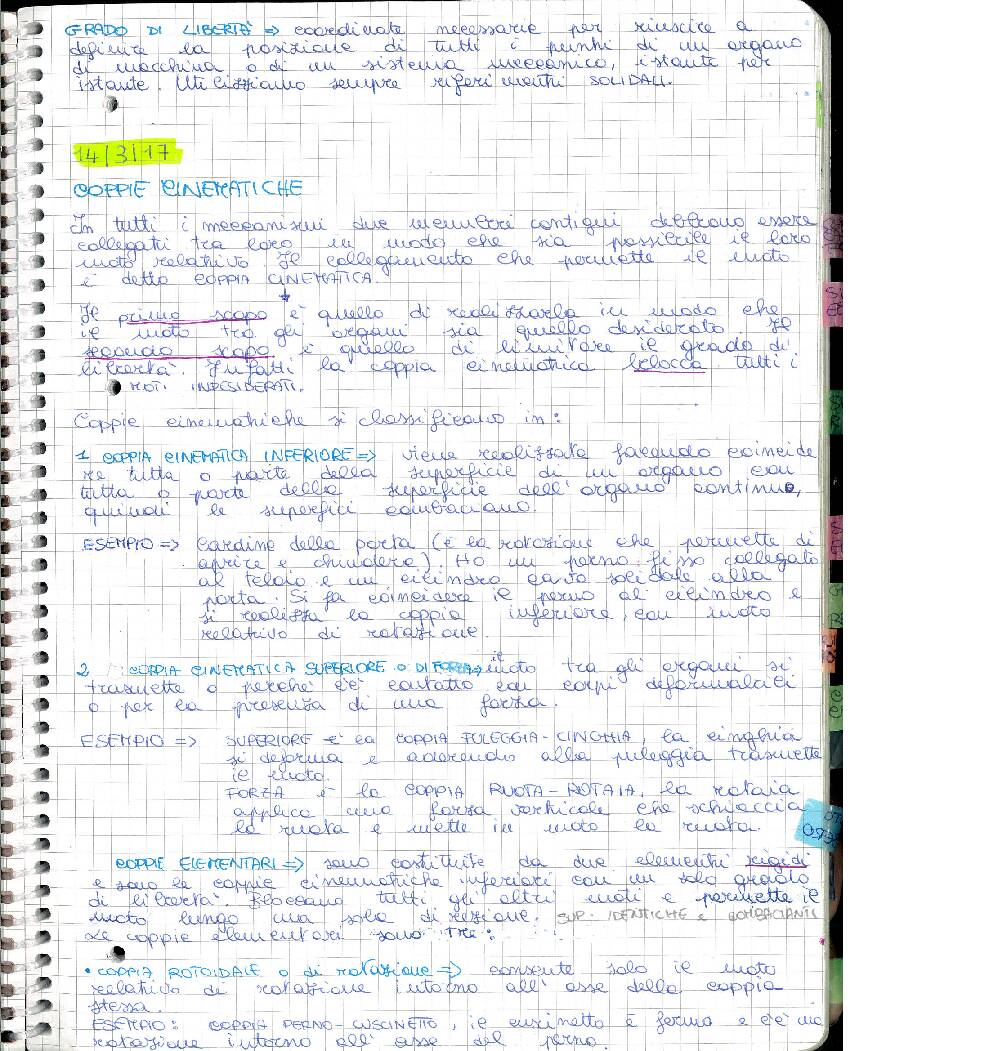 GRADO DI LIBERTÀ => coordinate necessarie per riuscire a
definire la posizione di tutti i punti di un organo
di macchina o di un sistema meccanico, istante per
istante. Utilizziamo sempre riferimenti SOLIDALI.
14/3/17
COPPIE CINEMATICHE
In tutti i meccanismi due membri contigui debbono essere
collegati tra loro in modo che sia possibile il loro
moto relativo. Il collegamento che permette il moto
è detto COPPIA CINEMATICA.
Il primo scopo è quello di realizzarla in modo che
il moto tra gli organi sia quello desiderato. Il
secondo scopo è quello di limitare il grado di
libertà. Infatti la coppia cinematica blocca tutti i
MOTI INDESIDERATI.
Coppie cinematiche si classificano in:
1 COPPIA CINEMATICA INFERIORE => viene realizzata facendo coincide
re tutta o parte della superficie di un organo con
tutta o parte della superficie dell'organo continuo,
quindi le superfici combaciano.
ESEMPIO => Cardine della porta (è la rotazione che permette di
aprire e chiudere). Ho un perno fisso collegato
al telaio e un cilindro cavo solidale alla
porta. Si fa coincidere il perno al cilindro e
si realizza la coppia inferiore, con moto
relativo di rotazione.
2 COPPIA CINEMATICA SUPERIORE O DI FORZA => il moto tra gli organi si
trasmette o perché c'è contatto con corpi deformabili
o per la presenza di una forza.
ESEMPIO => SUPERIORE è la COPPIA PULEGGIA-CINGHIA, la cinghia
si deforma e aderendo alla puleggia trasmette
il moto.
FORZA è la COPPIA RUOTA-ROTAIA, la rotaia
applica una forza verticale che schiaccia
la ruota e mette in moto la ruota.
COPPIE ELEMENTARI => sono costituite da due elementi rigidi
e sono le coppie cinematiche inferiori con un solo grado
di libertà. Bloccano tutti gli altri moti e permette il
moto lungo una sola direzione. SUP. IDENTICHE e COMBACIANTI
Le coppie elementari sono tre:
• COPPIA ROTOIDALE o di rotazione => consente solo il moto
relativo di rotazione intorno all'asse della coppia
stessa.
ESEMPIO: COPPIA PERNO-CUSCINETTO, il cuscinetto è fermo e c'è una
rotazione intorno all'asse del perno.